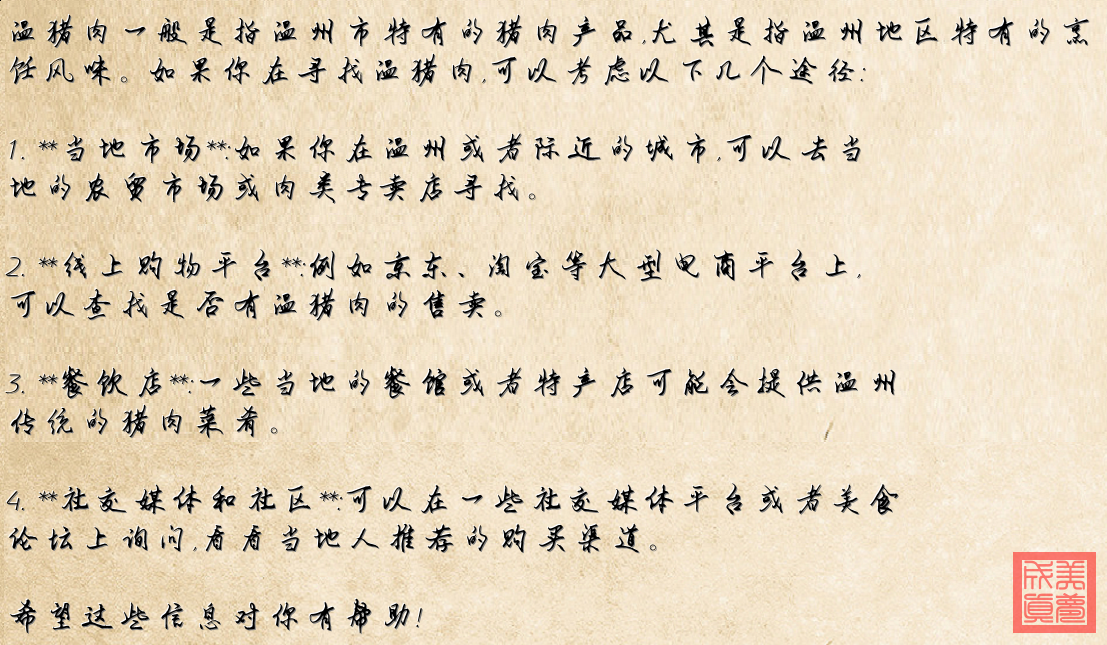 温猪肉一般是指温州市特有的猪肉产品,尤其是指温州地区特有的烹
饪风味。如果你在寻找温猪肉,可以考虑以下几个途径:
1. **当地市场**:如果你在温州或者际近的城市,可以去当
地的农贸市场或肉类专卖店寻找。
2. **线上购物平台**:例如京东、淘宝等大型电商平台上,
可以查找是否有温猪肉的售卖。
3. **餐饮店**:一些当地的餐馆或者特产店可能会提供温州
传统的猪肉菜肴。
4. **社交媒体和社区**:可以在一些社交媒体平台或者美食
论坛上询问,看看当地人推荐的购买渠道。
希望这些信息对你有帮助!
美梦
成真